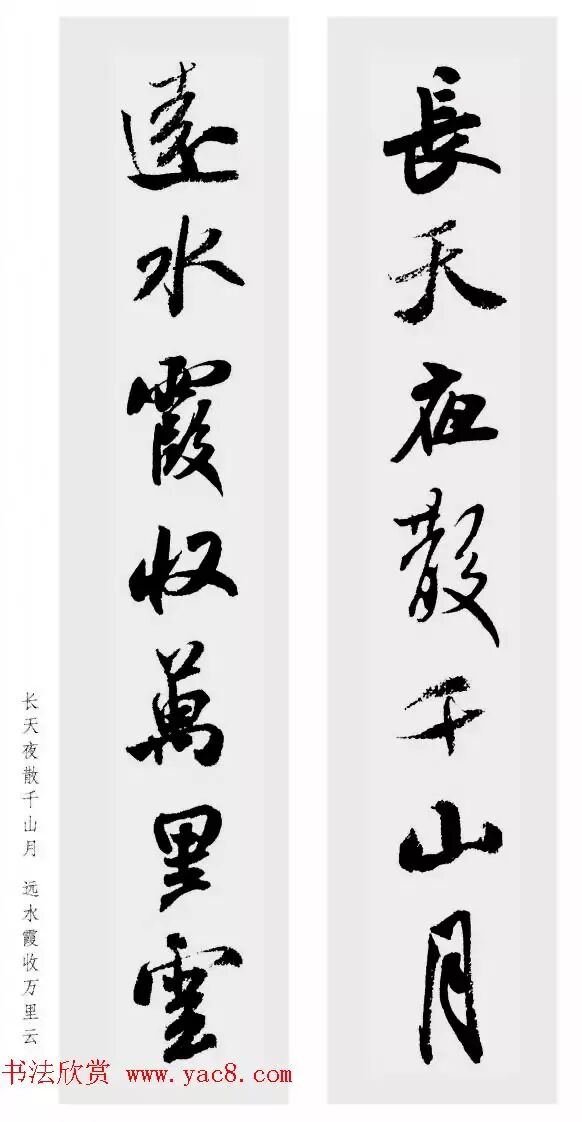 長天夜散千山月
遠水霞收萬里雲
长天夜散千山月 远水霞收万里云
书法欣赏 www.yac8.com